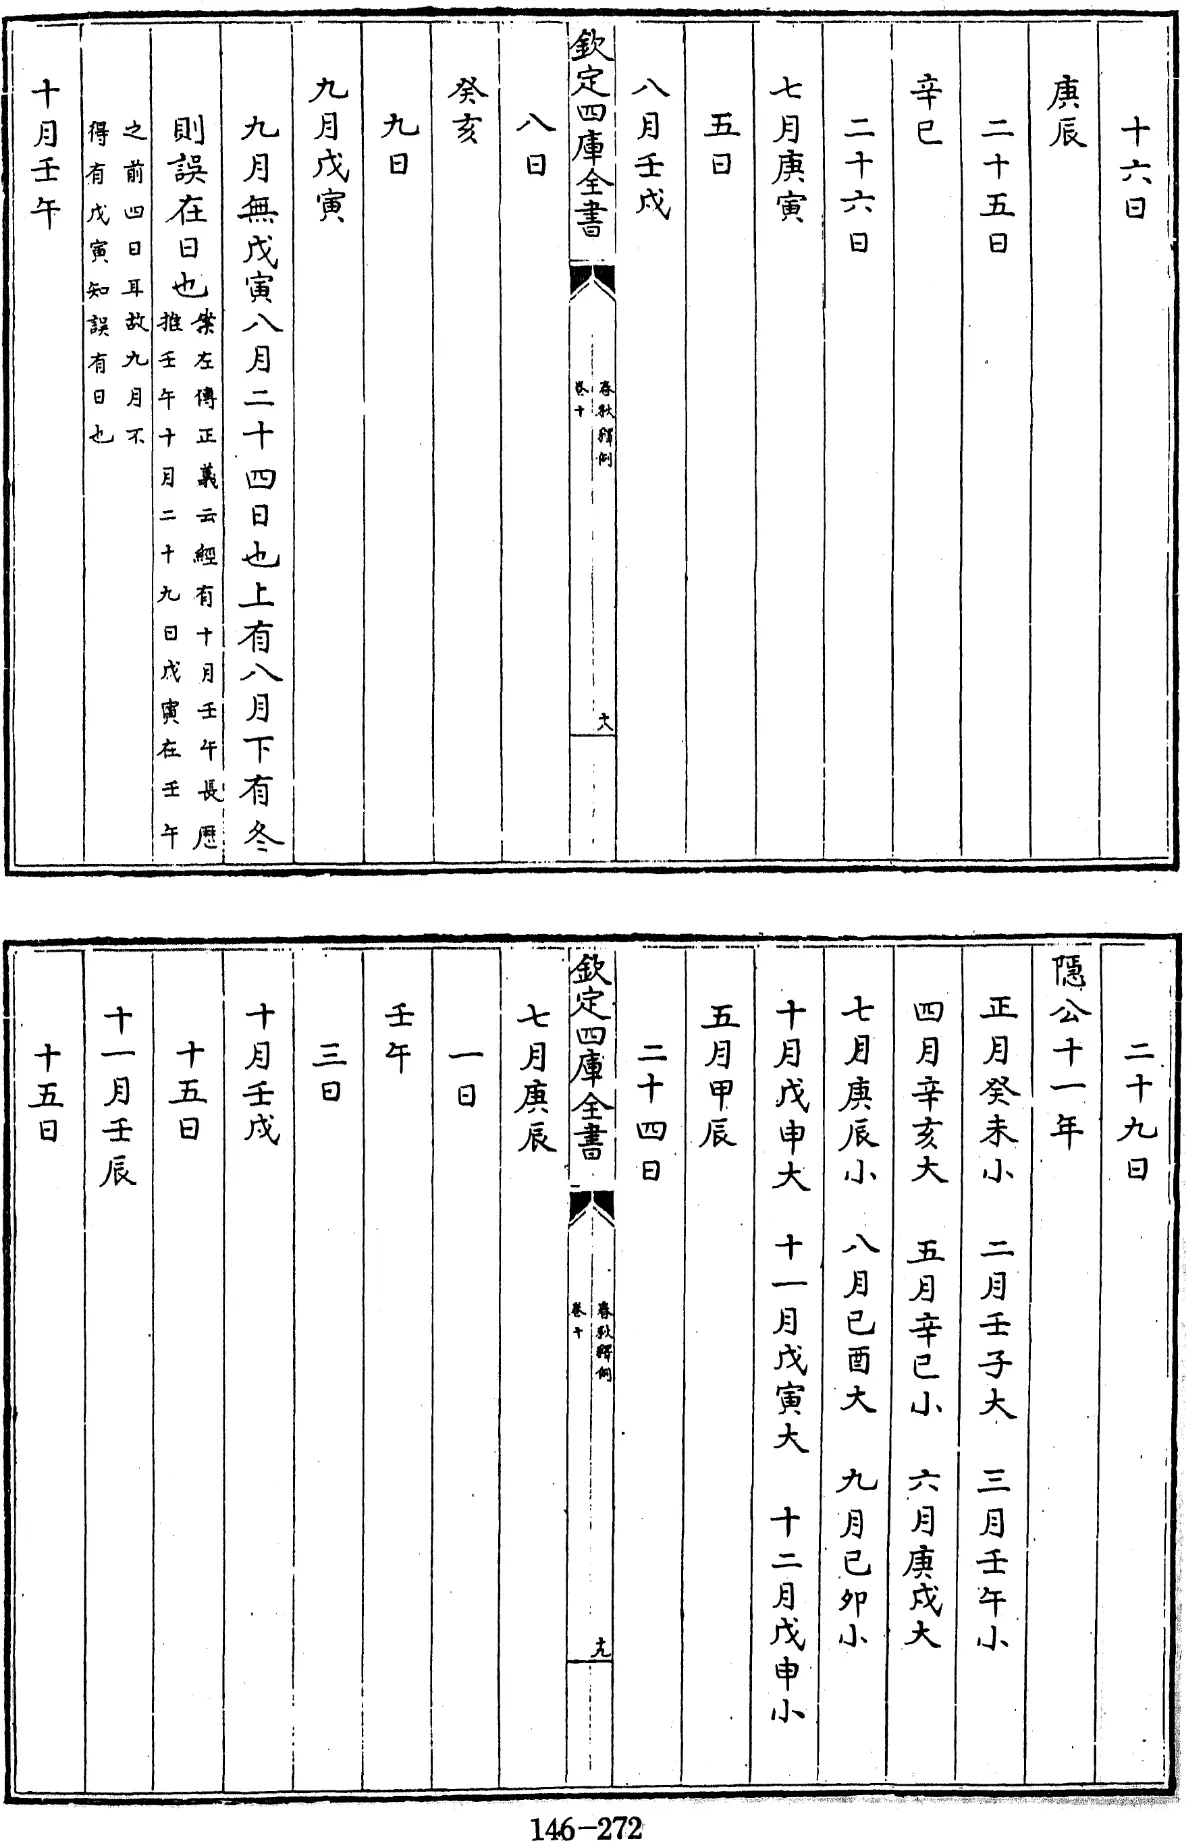 十六日
庚辰
二十五日
辛巳
二十六日
七月庚寅
五日
八月壬戌
欽定四庫全書
春秋釋例
卷十
十八
八日
癸亥
九日
九月戊寅
九月無戊寅八月二十四日也上有八月下有冬
則誤在日也
案左傳正義云經有十月壬午長厯
推壬午十月二十九日戊寅在壬午
之前四日耳故九月不
得有戊寅知誤有日也
十月壬午
二十九日
隱公十一年
正月癸未小 二月壬子大 三月壬午小
四月辛亥大 五月辛巳小 六月庚戌大
七月庚辰小 八月己酉大 九月己卯小
十月戊申大 十一月戊寅大 十二月戊申小
五月甲辰
二十四日
欽定四庫全書
春秋釋例
卷十
十九
七月庚辰
一日
壬午
三日
十月壬戌
十五日
十一月壬辰
十五日
146-272